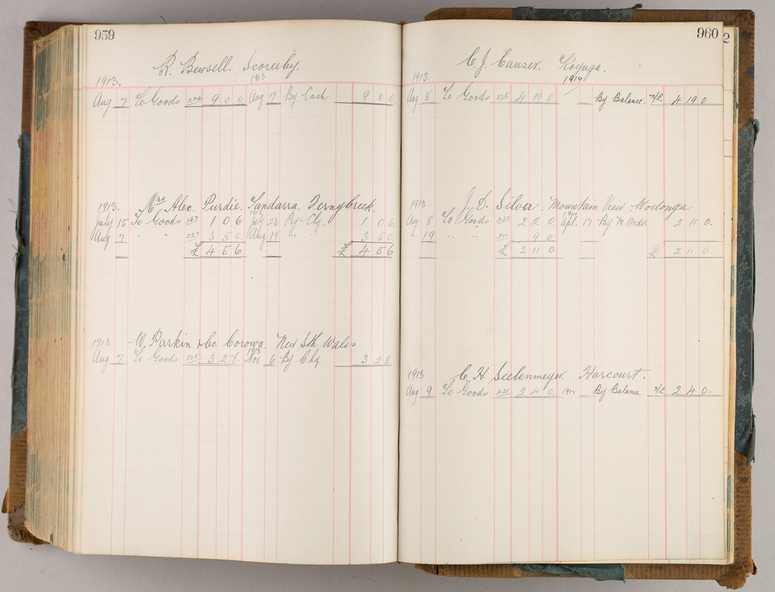 959
R. Bewsell. Scoresby.
1913. 1913
Aug 7 To Goods 226 9 0 0 Aug 7 By Cash 9 0 0
1913. Mrs Alex. Purdie. Yandarra. Ferny Creek.
July 15 To Goods 1 0 6 July 22 By Chq. 1 0 6
Aug 7 " " 227 3 5 0 Aug 19 " " 3 5 0
£ 4 5 6 £ 4 5 6
1913 W. Parkin & Co. Corowa. New Sth Wales
1913
Aug 7 To Goods 3 2 8 Nov 6 By Chq 3 2 8
960
C. J. Causer. Koyuga.
1913 1914
Aug 8 To Goods 4 19 0 By Balance. 4 19 0
1913 J. D. Silva Mountain View Wodonga
Aug 8 To Goods 2 2 0 Apl. 17 By M. Order 2 11 0.
" 19 " " 9 0
£ 2 11 0 £ 2 11 0
1913 C. H. Seelenmeyer. Harcourt.
Aug 9 To Goods 231 2 4 0 1914 By Balance 2 4 0.
2